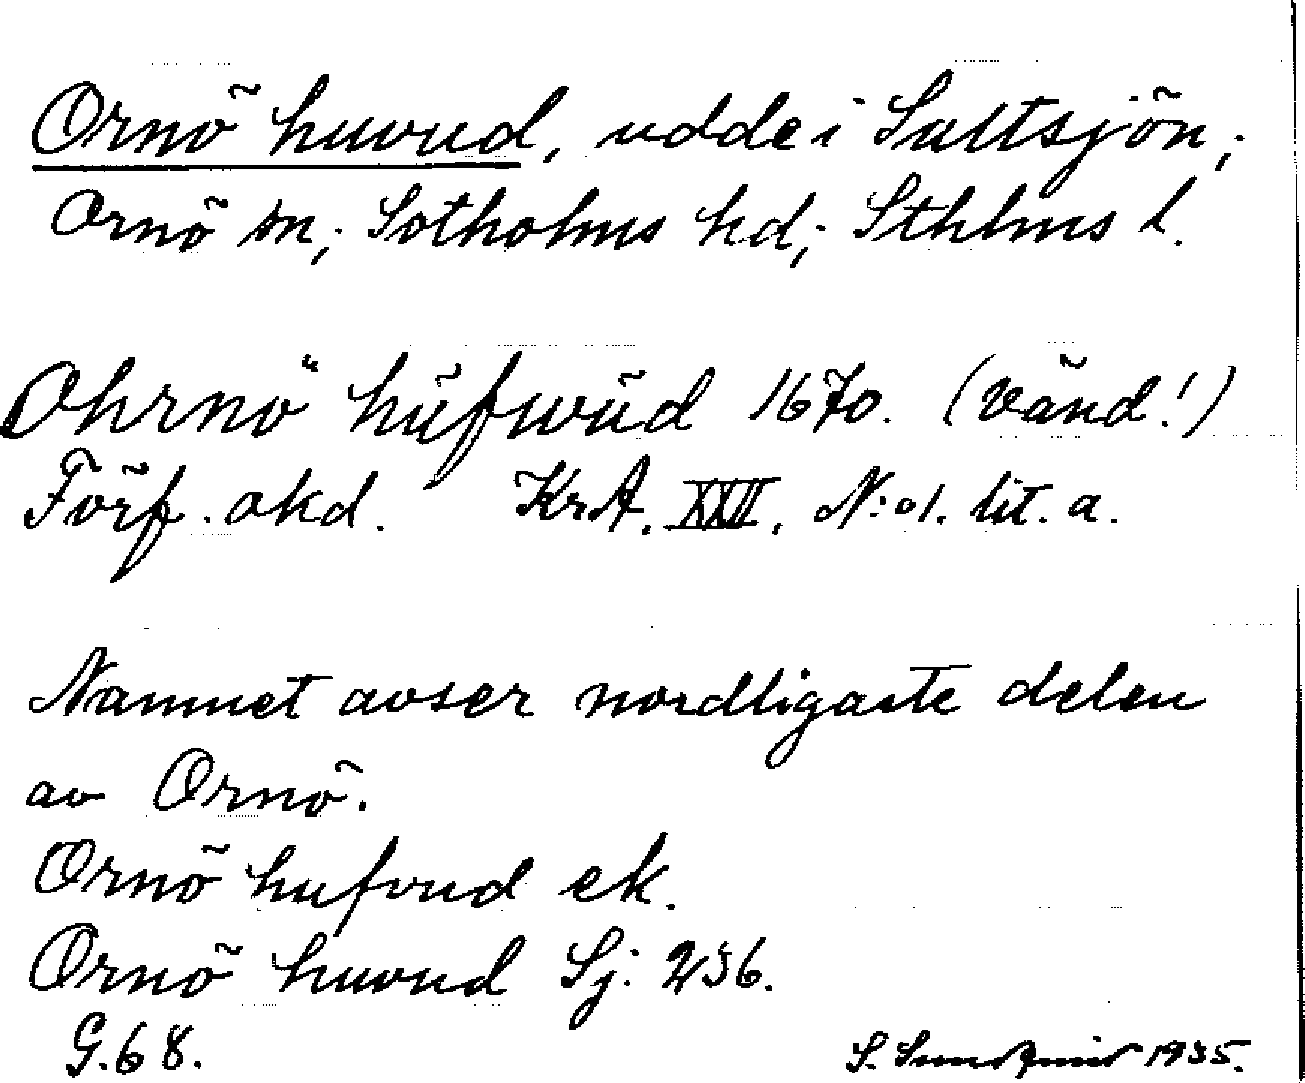 Ornö huvud, udde i Saltsjön;
Ornö sn; Sotholms hd; Sthlms l.
Ohrnö hüfwüd 1670. (Vänd!)
Förf. okd. KrA. XXII, N:o1. lit. a.
Namnet avser nordligaste delen
av Ornö.
Ornö hufvud ek.
Ornö huvud Sj: 236.
G.68.
S. Sundqvist 1935.